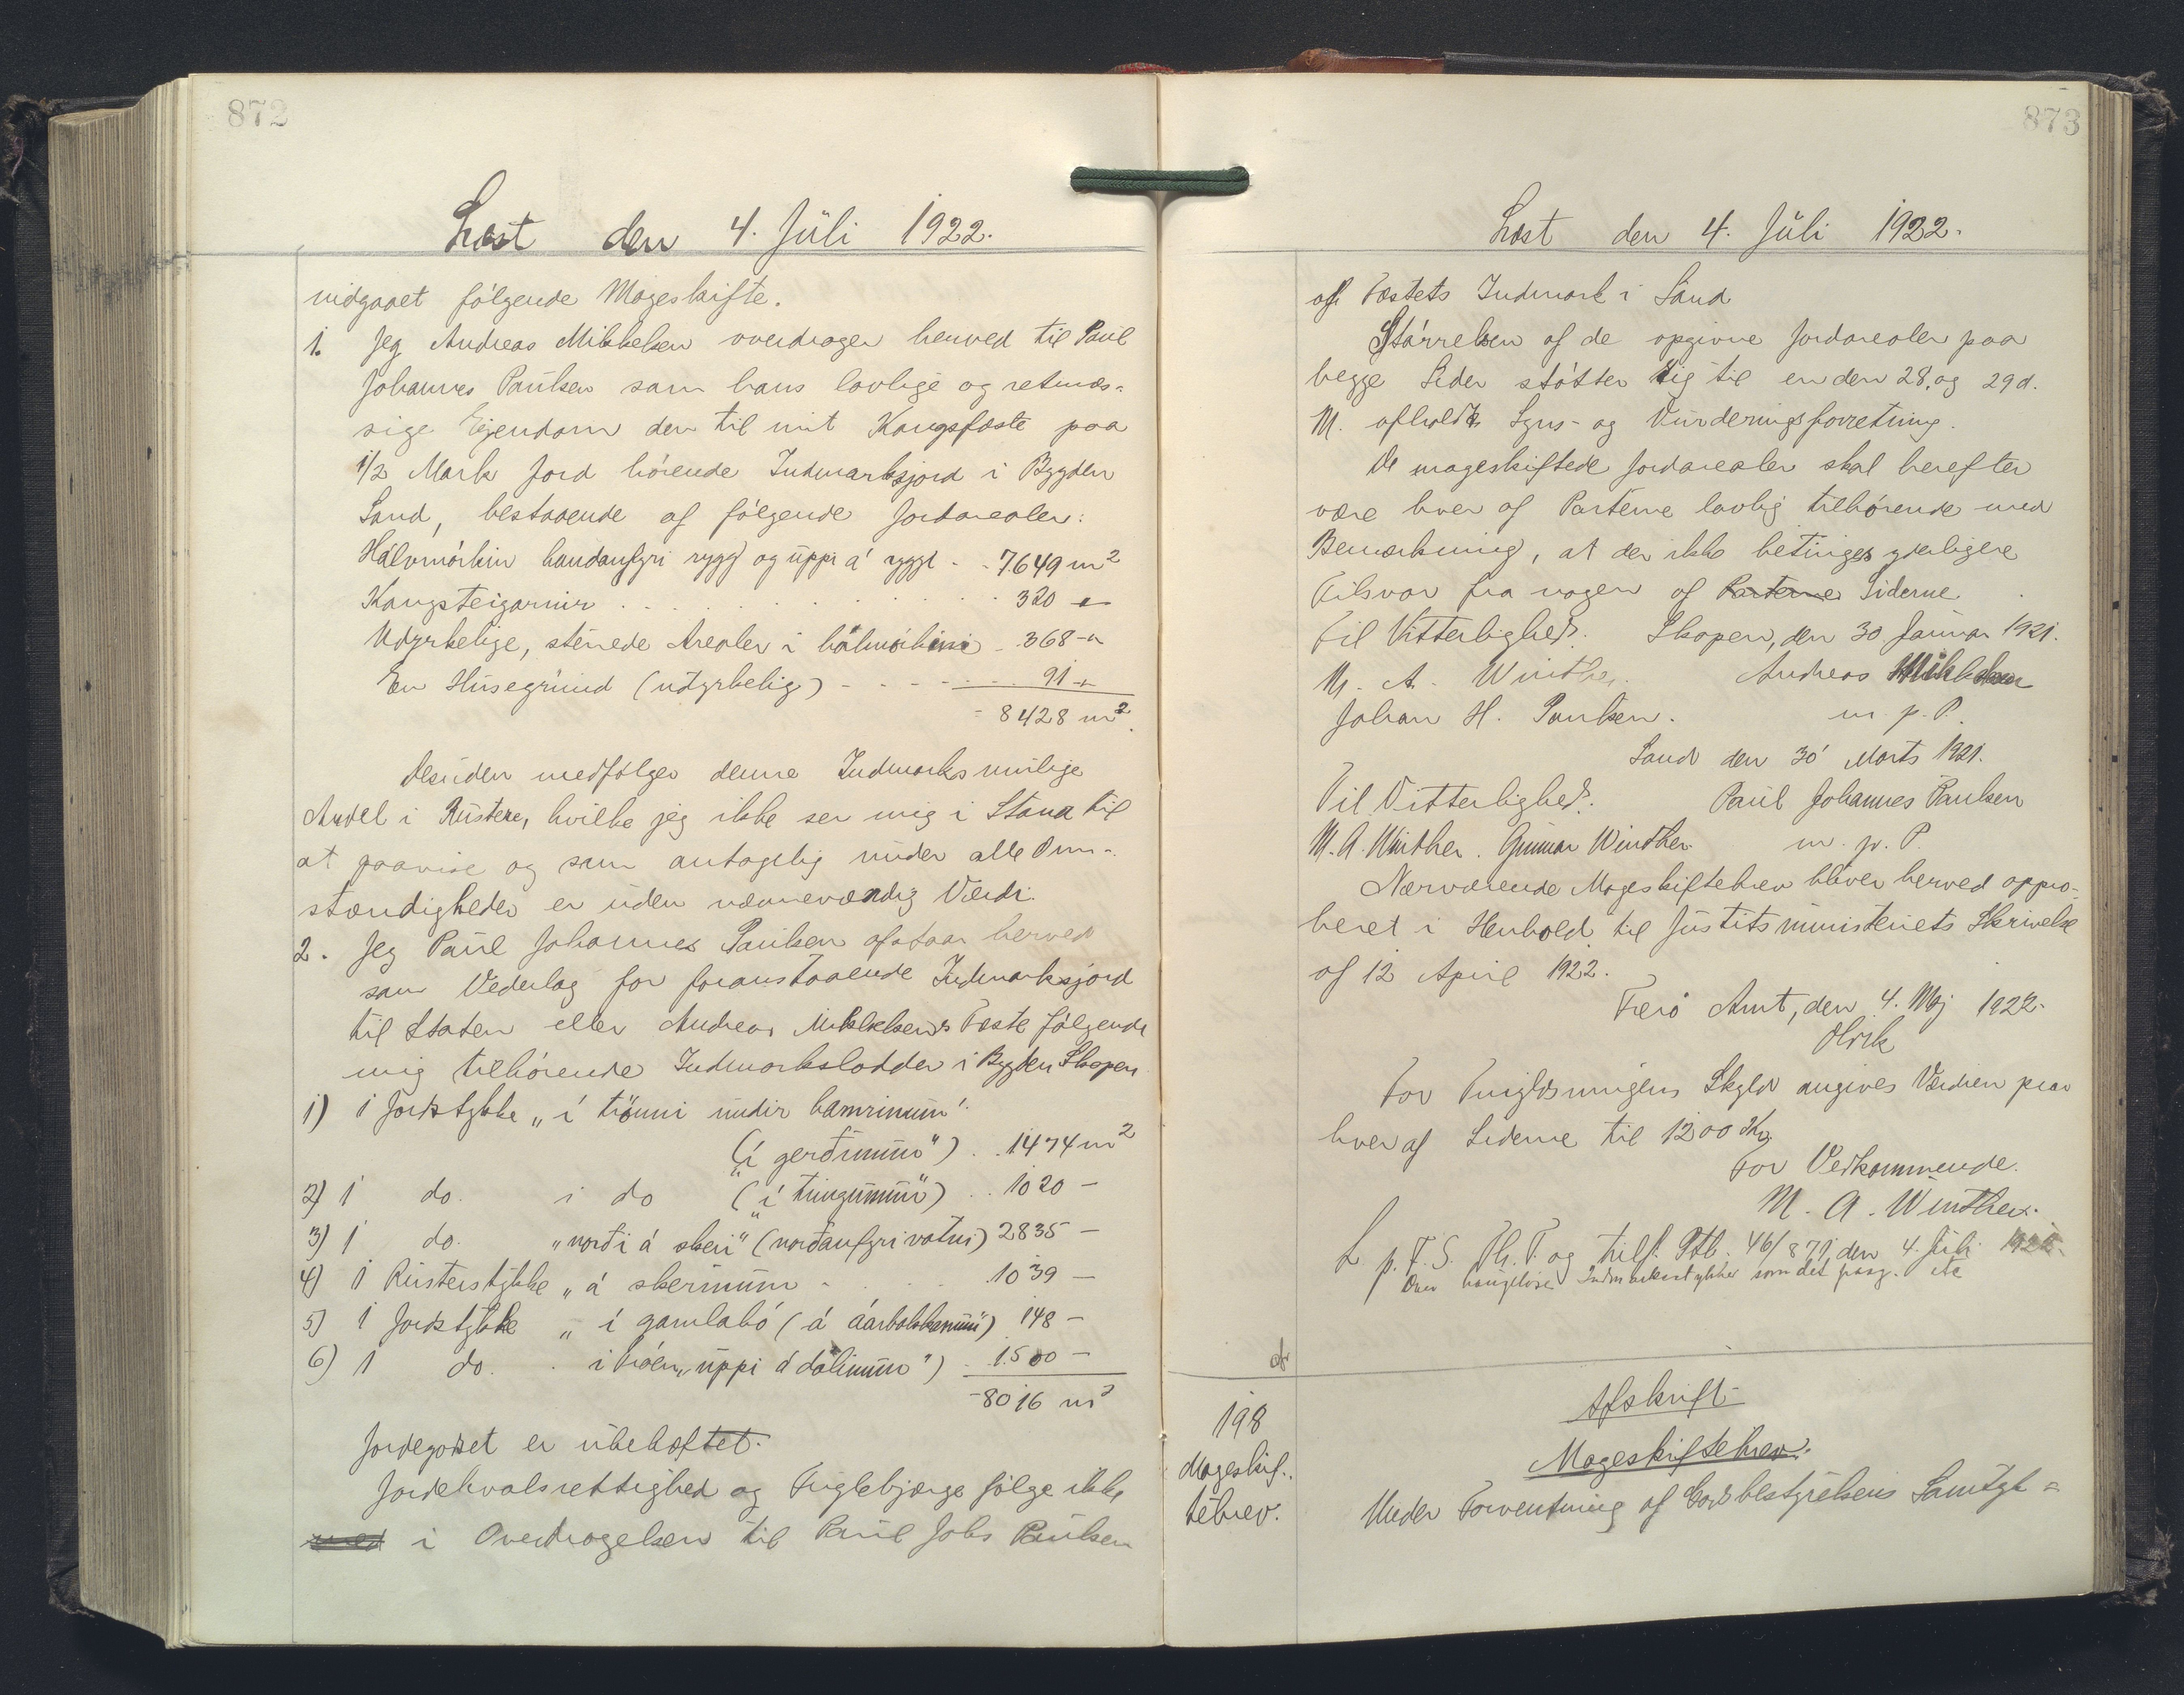 872
Læst den 4. Juli 1922.
indgaaet følgende Mageskifte.
1. Jeg Andreas Mikkelsen overdrager herved til Paul
Johannes Paulsen som hans lovlige og retmæs-
sige Ejendom den til mit Kongsfæste paa
1/2 Mark Jord hørende Indmarksjord i Bygden
Sand, bestaaende af følgende Jordarealer:
Hálvmørkin handanfyri rygg og uppi á ryggi - - 7649 m2
Kongsteigarnir . . . 320 -
Udyrkelige, stenede Arealer i hálvmørkini - 368 -
En Husegrund (udyrkelig) - - - - - 91 -
8428 m2.
Desuden medfølger denne Indmarks mulige
Andel i Rustere, hvilke jeg ikke ser mig i Stand til
at paavise og som antagelig under alle Om-
stændigheder er uden nævneværdig Værdi.
2. Jeg Paul Johannes Paulsen afstaar herved
som Vederlag for foranstaaende Indmarksjord
til Staten eller Andreas Mikkelsens Fæste følgende
mig tilhørende Indmarkslodder i Bygden Skopen
1) 1 Jordstykke „í trønni undir hamrinum"
(„í gerðinum") . . 1474 m2
2) 1 do. i do („í tungunum") . . 1020 -
3) 1 do. „norði á skeri" (norðanfyri vatni) 2835 -
4) 1 Rusterstykke „á skerinum - . . . 1039 -
5) 1 Jordstykke „í gamlabø (á áarbakkanum") 148 -
6) 1 do. . i „uppi á dalinum") - 1500 -
8016 m2
Jordegodset er ubehæftet.
Jordehvalsrettighed og Fuglebjærge følge ikke
med i Overdragelsen til Paul Johs Paulsen
873
Læst den 4. Juli 1922.
af Fæstets Indmark i Sand
Størrelsen af de opgivne Jordarealer paa
begge Sider støtter sig til en den 28. og 29 d.
M. afholdt Syns- og Vurderingsforretning.
De mageskiftede Jordarealer skal herefter
være hver af Parterne lovlig tilhørende med
Bemærkning, at der ikke betinges yderligere
Tilsvar fra nogen af Parterne Siderne.
Til Vitterlighed. Skopen, den 30. Januar 1921.
M. A. Winther. Andreas Mikkelsen
Johan H. Poulsen. m. p. P.
Sand den 30' Marts 1921.
Til Vitterlighed. Paul Johannes Paulsen
M. A. Winther. Gunnar Winther. m. p. P.
Nærværende Mageskiftebrev bliver herved appro-
beret i Henhold til Justitsministeriets Skrivelse
af 12 April 1922.
Færø Amt, den 4. Maj 1922.
Olrik
For Tinglæsningens Skyld angives Værdien paa
hver af Siderne til 1200 Kr.
For Vedkommende.
M. A. Winther.
L p. F. S. Th. T. og tilf. Ptb. 46/879, den 4. Juli 1922.
Indmarksstykker som det pasg. etc
198
Mageskif-
tebrev.
Afskrift
Mageskiftebrev.
Under Forventning af Godsbestyrelsens Samtyk=